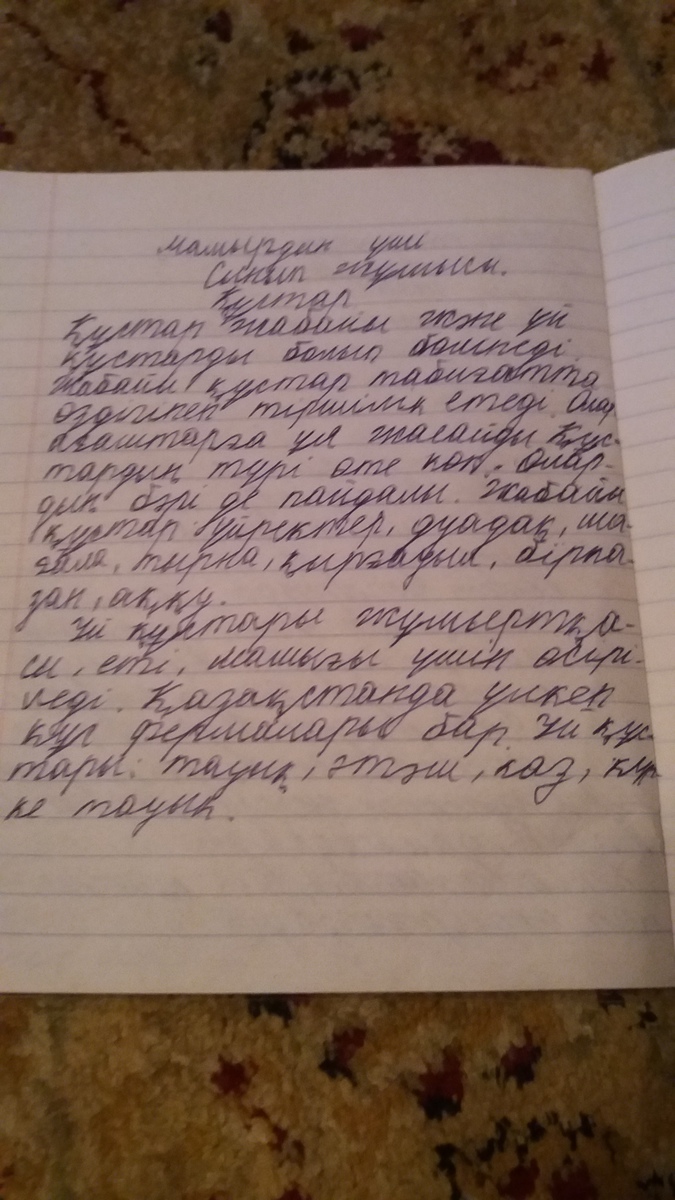 мамырдың үші
Сынып жұмысы.
Құстар
Құстар жабайы және үй
құстарды болып бөлінеді.
Жабайы құстар табиғатта
өздігінен тіршілік етеді. Олар
ағаштарға ұя жасайды Құс-
тардың түрі өте көп. Олар-
дың бәрі де пайдалы. Жабайы
құстар: үйректер, дуадақ, ша-
ғала, тырна, қырғауыл, бірқа-
зан, аққу.
Үй құстары жұмыртқа-
сы, еті, мамығы үшін өсірі-
леді. Қазақстанда үлкен
құс фермалары бар. Үй құс
тары: тауық, әтэш, қаз, күр
ке тауық.